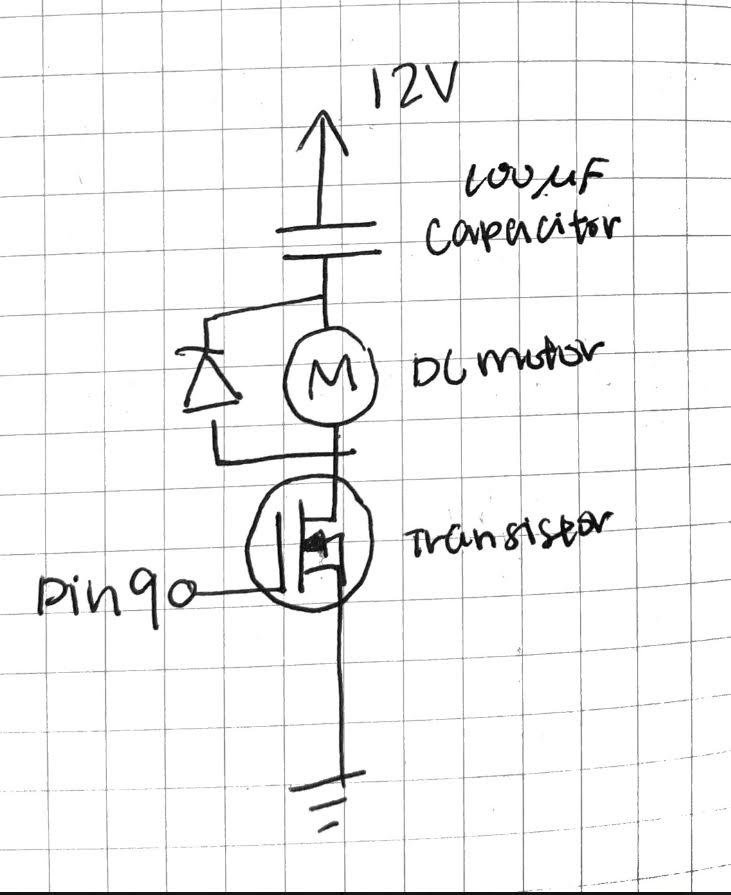 12V
100µF
capacitor
M
DC motor
Transistor
Pin 9